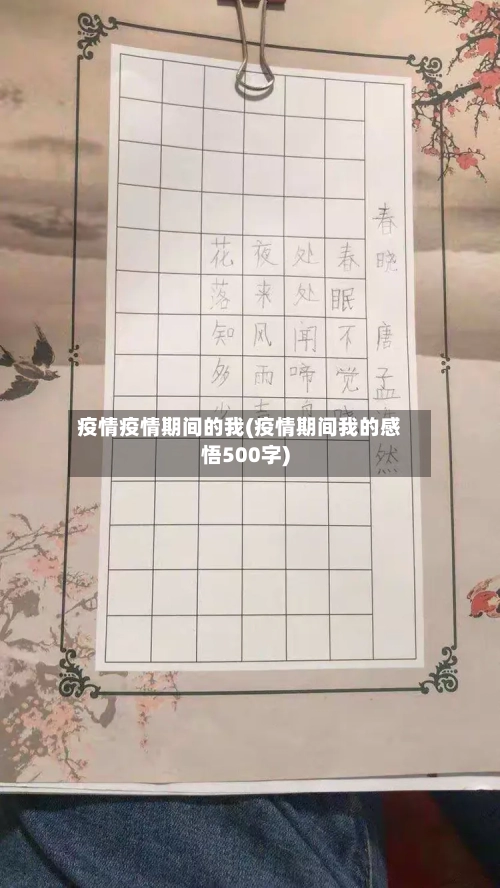 春晓 唐 孟然
春眠不觉
处处闻啼
夜来风雨
花落知多
疫情疫情期间的我(疫情期间我的感
悟500字)